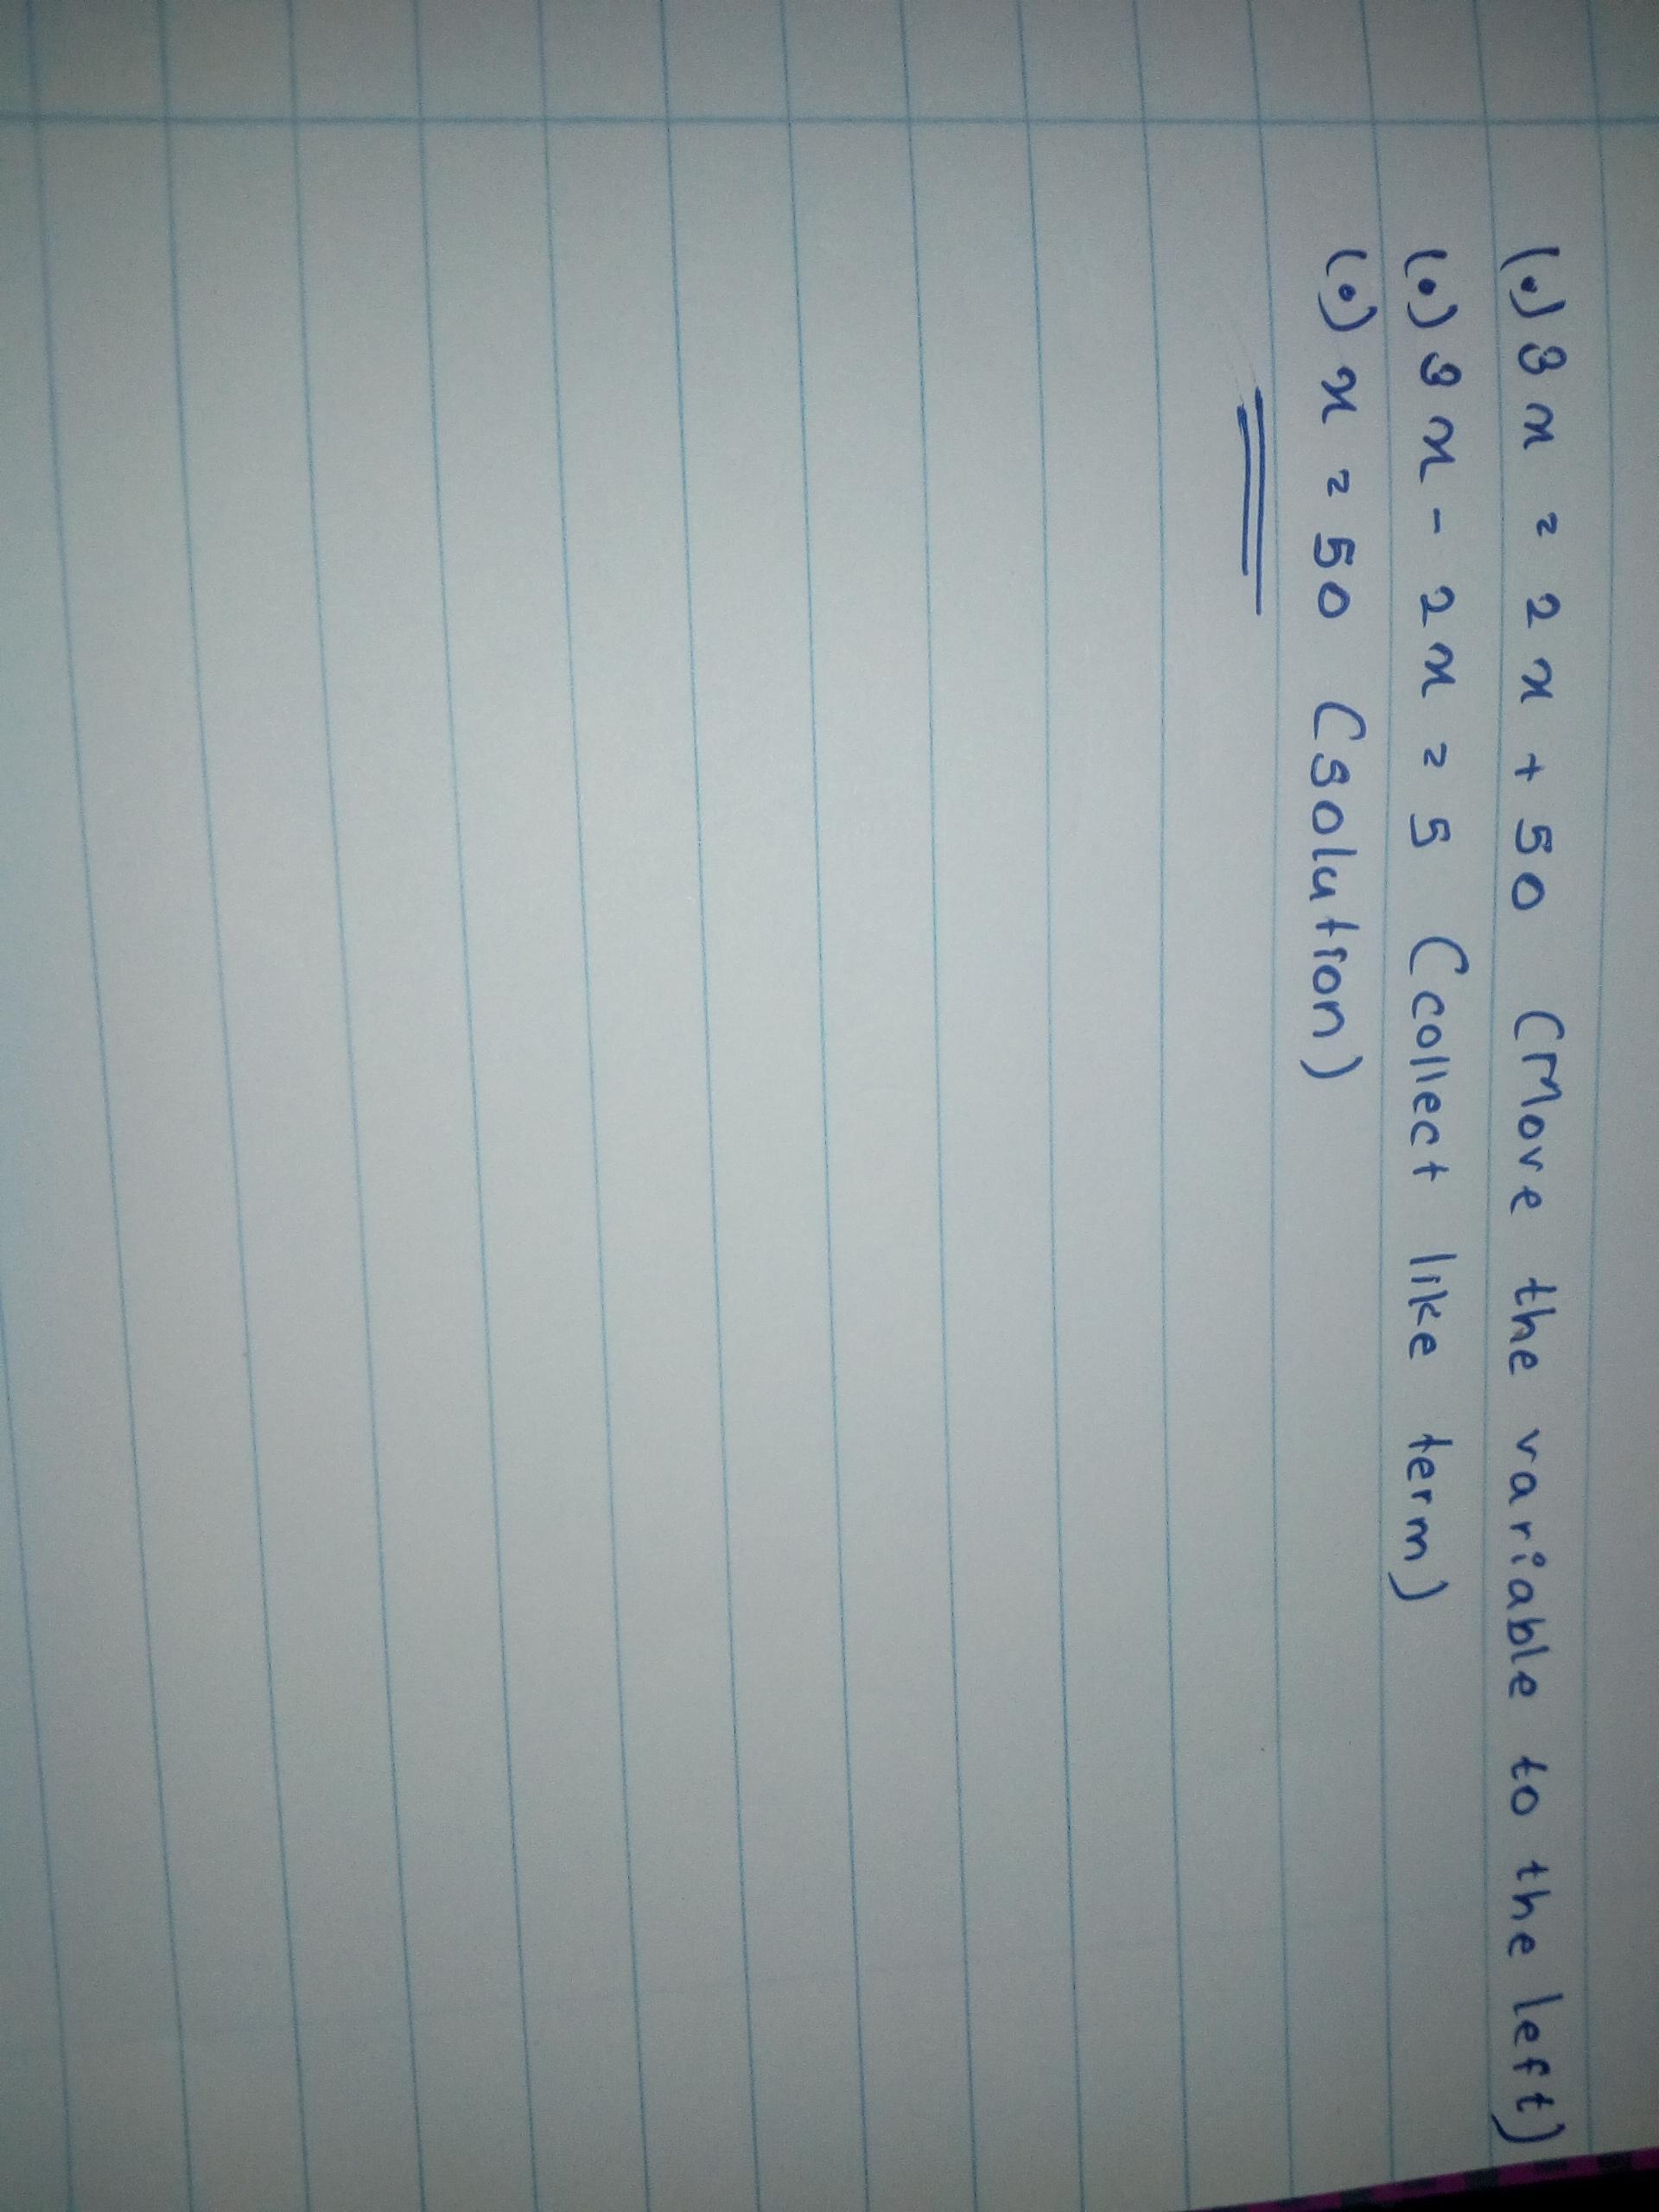 (•) 3x = 2x + 50 (Move the variable to the left)
(•) 3x - 2x = 5 (collect like term)
(•) x = 50 (solution)